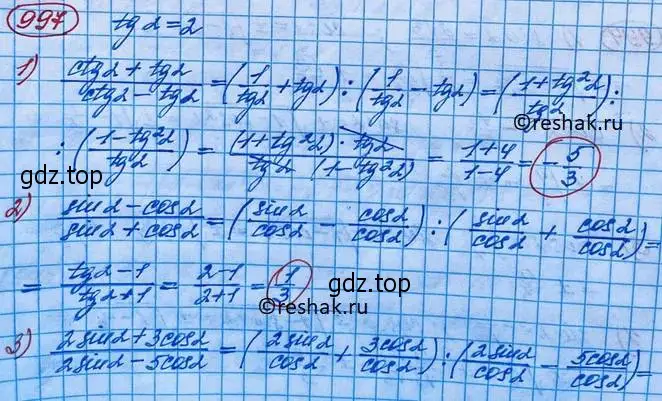 997 tgα = 2
1) (ctgα + tgα)/(ctgα − tgα) = (1/tgα + tgα) : (1/tgα − tgα) = ((1+tg²α)/tgα) :
©reshak.ru
: ((1−tg²α)/tgα) = ((1+tg²α)·tgα)/(tgα (1−tg²α)) = (1+4)/(1−4) = −5/3
gdz.top
2) (sinα − cosα)/(sinα + cosα) = (sinα/cosα − cosα/cosα) : (sinα/cosα + cosα/cosα) =
= (tgα − 1)/(tgα + 1) = (2−1)/(2+1) = 1/3
gdz.top
©reshak.ru
3) (2sinα + 3cosα)/(2sinα − 5cosα) = (2sinα/cosα + 3cosα/cosα) : (2sinα/cosα − 5cosα/cosα) =